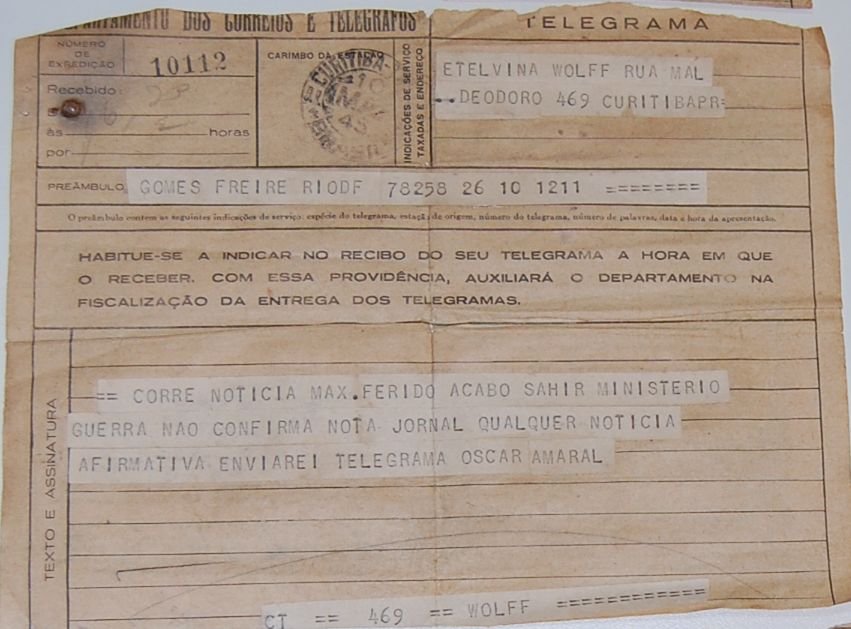 DEPARTAMENTO DOS CORREIOS E TELEGRAFOS
TELEGRAMA
NÚMERO
DE
EXPEDIÇÃO
10112
Recebido:
às horas
por
CARIMBO DA ESTAÇÃO
CURITIBA
INDICAÇÕES DE SERVIÇO
TAXADAS E ENDEREÇO
ETELVINA WOLFF RUA MAL
DEODORO 469 CURITIBAPR=
PREÂMBULO GOMES FREIRE RIODF 78258 26 10 1211 ========
O preâmbulo contem as seguintes indicações de serviço: espécie do telegrama, estação de origem, número do telegrama, número de palavras, data e hora da apresentação.
HABITUE-SE A INDICAR NO RECIBO DO SEU TELEGRAMA A HORA EM QUE
O RECEBER. COM ESSA PROVIDÊNCIA, AUXILIARÁ O DEPARTAMENTO NA
FISCALIZAÇÃO DA ENTREGA DOS TELEGRAMAS.
TEXTO E ASSINATURA
== CORRE NOTICIA MAX.FERIDO ACABO SAHIR MINISTERIO
GUERRA NAO CONFIRMA NOTA JORNAL QUALQUER NOTICIA
AFIRMATIVA ENVIAREI TELEGRAMA OSCAR AMARAL
CT == 469 == WOLFF ============